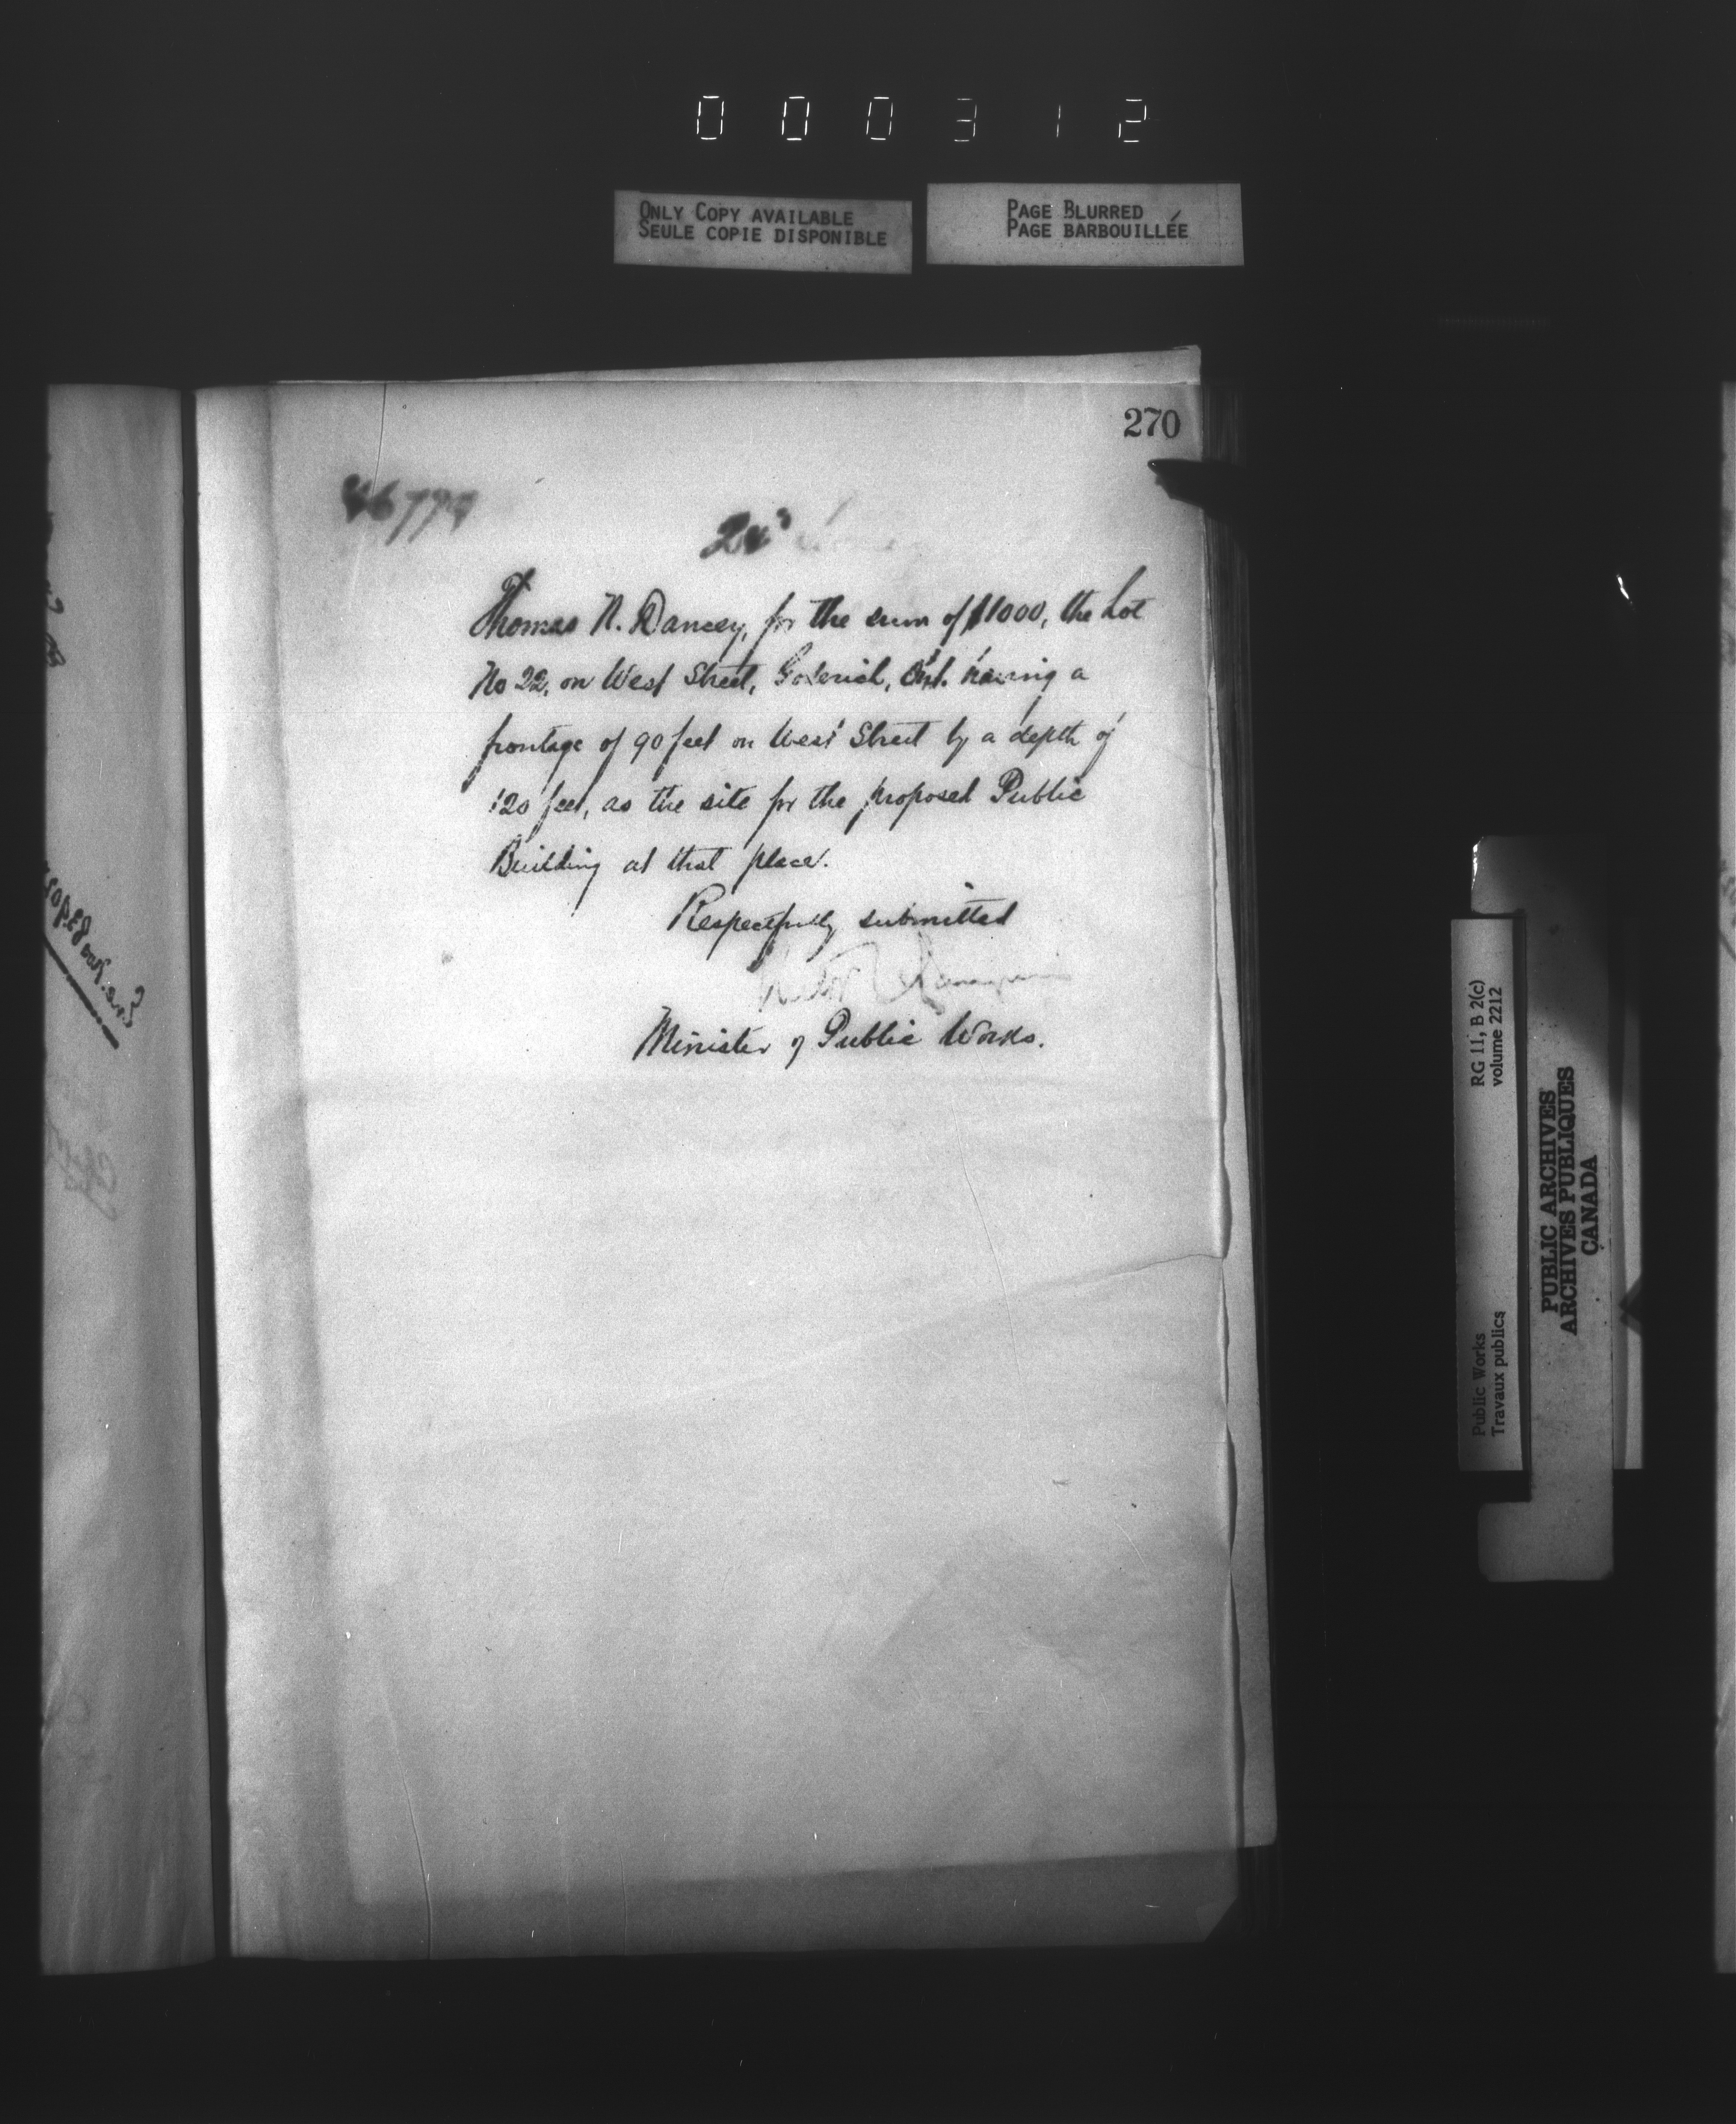 000312
ONLY COPY AVAILABLE
SEULE COPIE DISPONIBLE
PAGE BLURRED
PAGE BARBOUILLÉE
270
Thomas N. Dancey, for the sum of $1000, the Lot
No 22, on West Street, Goderich, Ont. having a
frontage of 90 feet on West Street by a depth of
120 feet, as the site for the proposed Public
Building at that place.
Respectfully submitted
Minister of Public Works.
RG 11, B 2(c)
volume 2212
Public Works
Travaux publics
PUBLIC ARCHIVES
ARCHIVES PUBLIQUES
CANADA